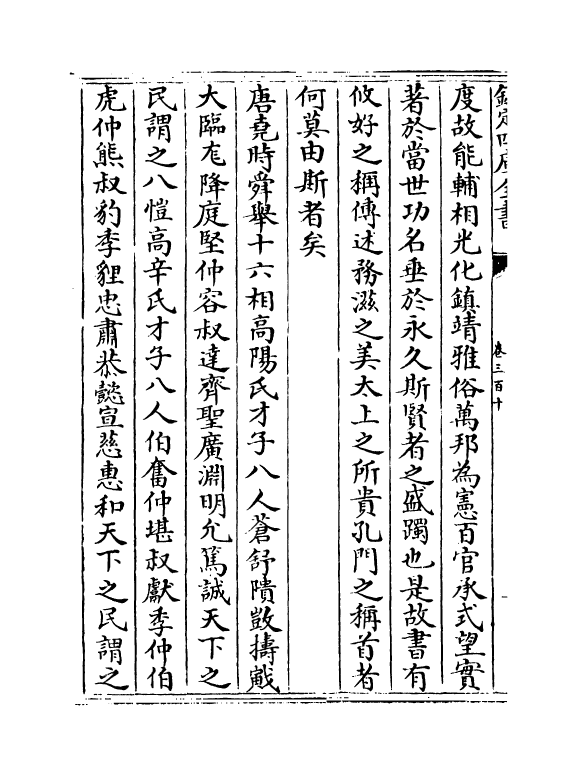 欽定四庫全書
卷三百十
度故能輔相光化鎮靖雅俗萬邦為憲百官承式望實
著於當世功名垂於永久斯賢者之盛躅也是故書有
攸好之稱傳述務滋之美太上之所貴孔門之稱首者
何莫由斯者矣
唐堯時舜舉十六相高陽氏才子八人蒼舒隤敳擣戭
大臨尨降庭堅仲容叔達齊聖廣淵明允篤誠天下之
民謂之八愷高辛氏才子八人伯奮仲堪叔獻季仲伯
虎仲熊叔豹季貍忠肅恭懿宣慈惠和天下之民謂之